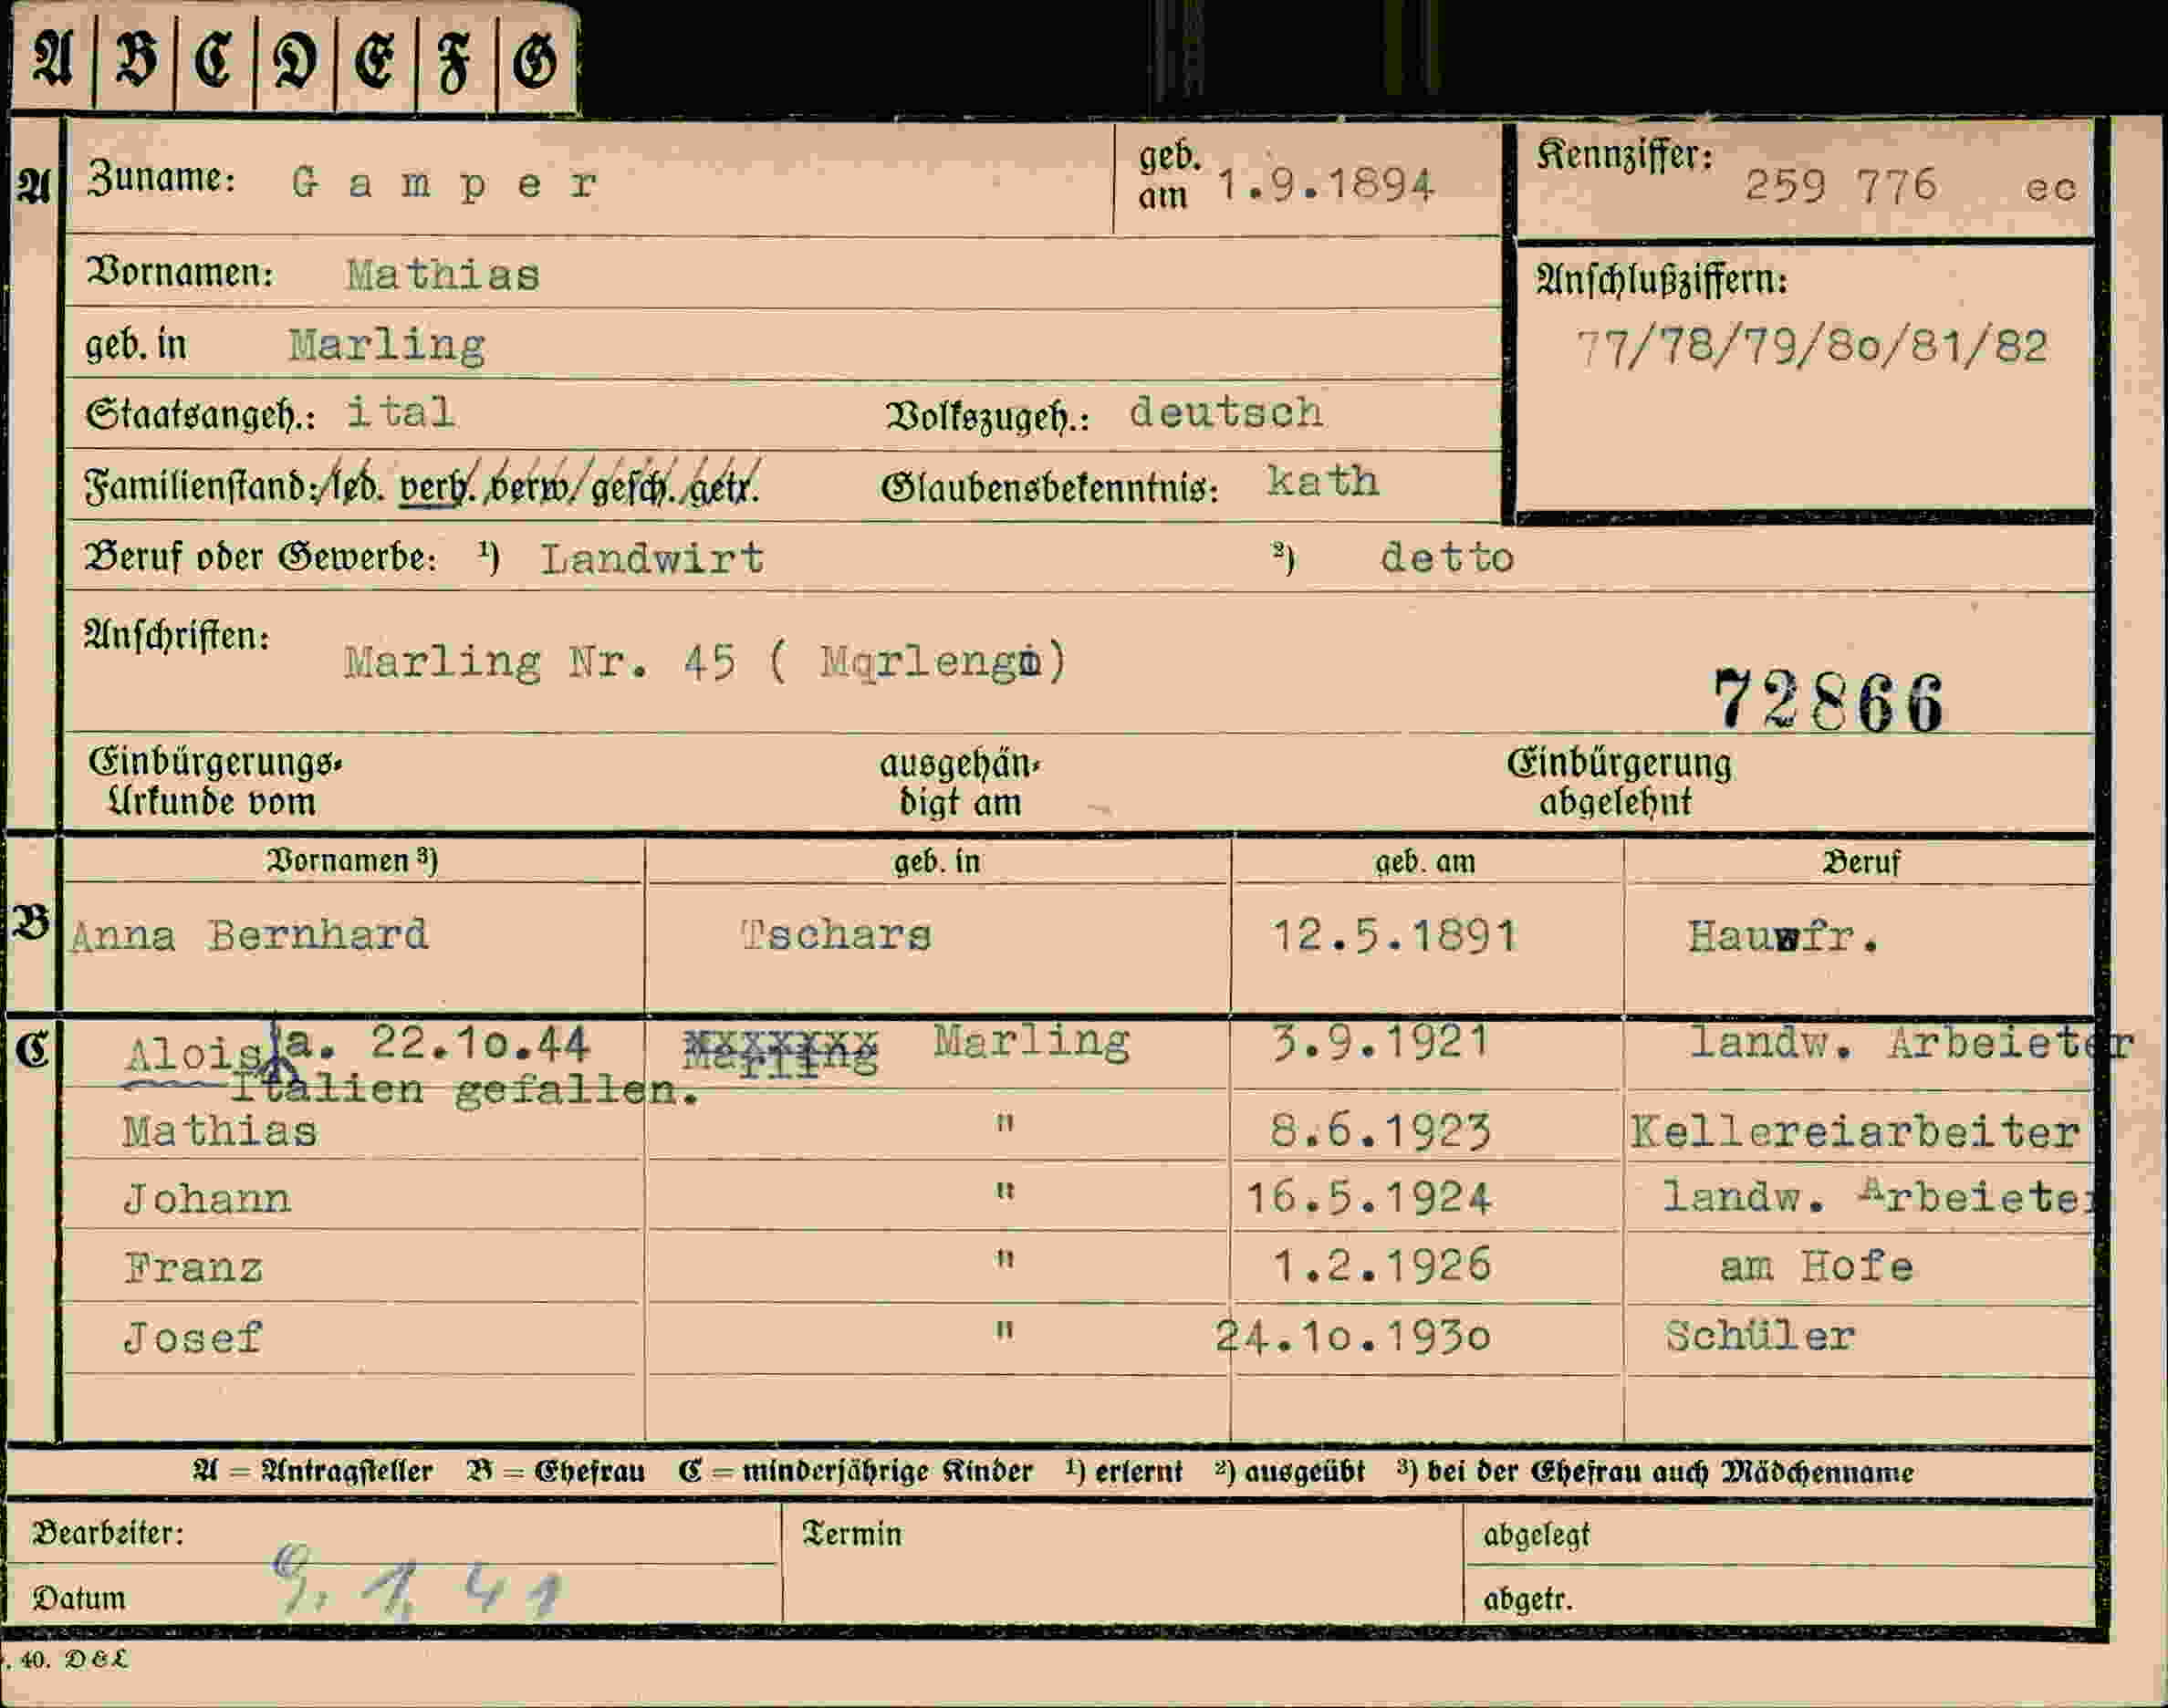 A B C D E F G
A Zuname: Gamper geb. am 1.9.1894 Kennziffer: 259 776 ec
Vornamen: Mathias Anschlußziffern:
geb. in Marling 77/78/79/80/81/82
Staatsangeh.: ital Volkszugeh.: deutsch
Familienstand: led. verh. verw. gesch. getr. Glaubensbekenntnis: kath
Beruf oder Gewerbe: ¹) Landwirt ²) detto
Anschriften:
Marling Nr. 45 ( Mqrlengo)
72866
Einbürgerungs- ausgehän- Einbürgerung
Urkunde vom digt am abgelehnt
Vornamen ³) geb. in geb. am Beruf
B Anna Bernhard Tschars 12.5.1891 Hausfr.
C Alois a. 22.10.44 Marling Marling 3.9.1921 landw. Arbeieter
Italien gefallen.
Mathias " 8.6.1923 Kellereiarbeiter
Johann " 16.5.1924 landw. Arbeieter
Franz " 1.2.1926 am Hofe
Josef " 24.10.1930 Schüler
A = Antragsteller B = Ehefrau C = minderjährige Kinder ¹) erlernt ²) ausgeübt ³) bei der Ehefrau auch Mädchenname
Bearbeiter: Termin abgelegt
Datum 9. 1. 41 abgetr.
. 40. D&L